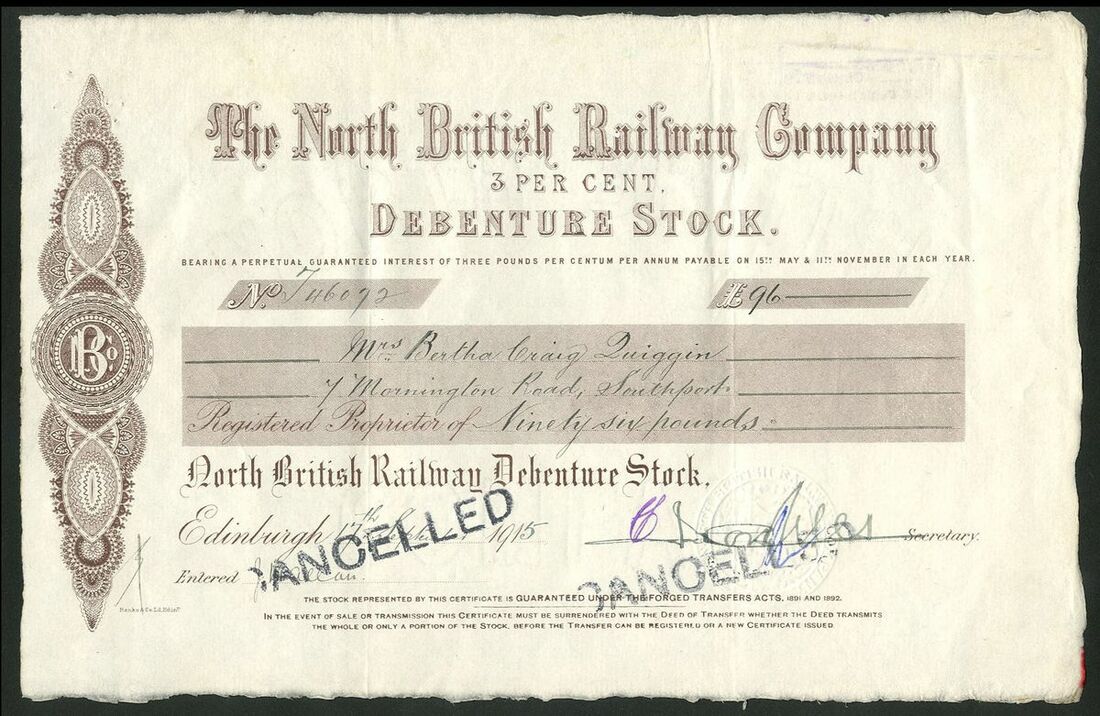 The North British Railway Company
3 PER CENT.
DEBENTURE STOCK.
BEARING A PERPETUAL GUARANTEED INTEREST OF THREE POUNDS PER CENTUM PER ANNUM PAYABLE ON 15TH MAY & 11TH NOVEMBER IN EACH YEAR.
No. T46072 £96
Mrs Bertha Craig Quiggin
7 Mornington Road, Southport
Registered Proprietor of Ninety six pounds
North British Railway Debenture Stock.
Edinburgh 17th 1915 Secretary.
CANCELLED
Entered
CANCELLED
THE STOCK REPRESENTED BY THIS CERTIFICATE IS GUARANTEED UNDER THE FORGED TRANSFERS ACTS, 1891 AND 1892.
IN THE EVENT OF SALE OR TRANSMISSION THIS CERTIFICATE MUST BE SURRENDERED WITH THE DEED OF TRANSFER WHETHER THE DEED TRANSMITS
THE WHOLE OR ONLY A PORTION OF THE STOCK, BEFORE THE TRANSFER CAN BE REGISTERED OR A NEW CERTIFICATE ISSUED.
Banks & Co. Ld. Edinr.